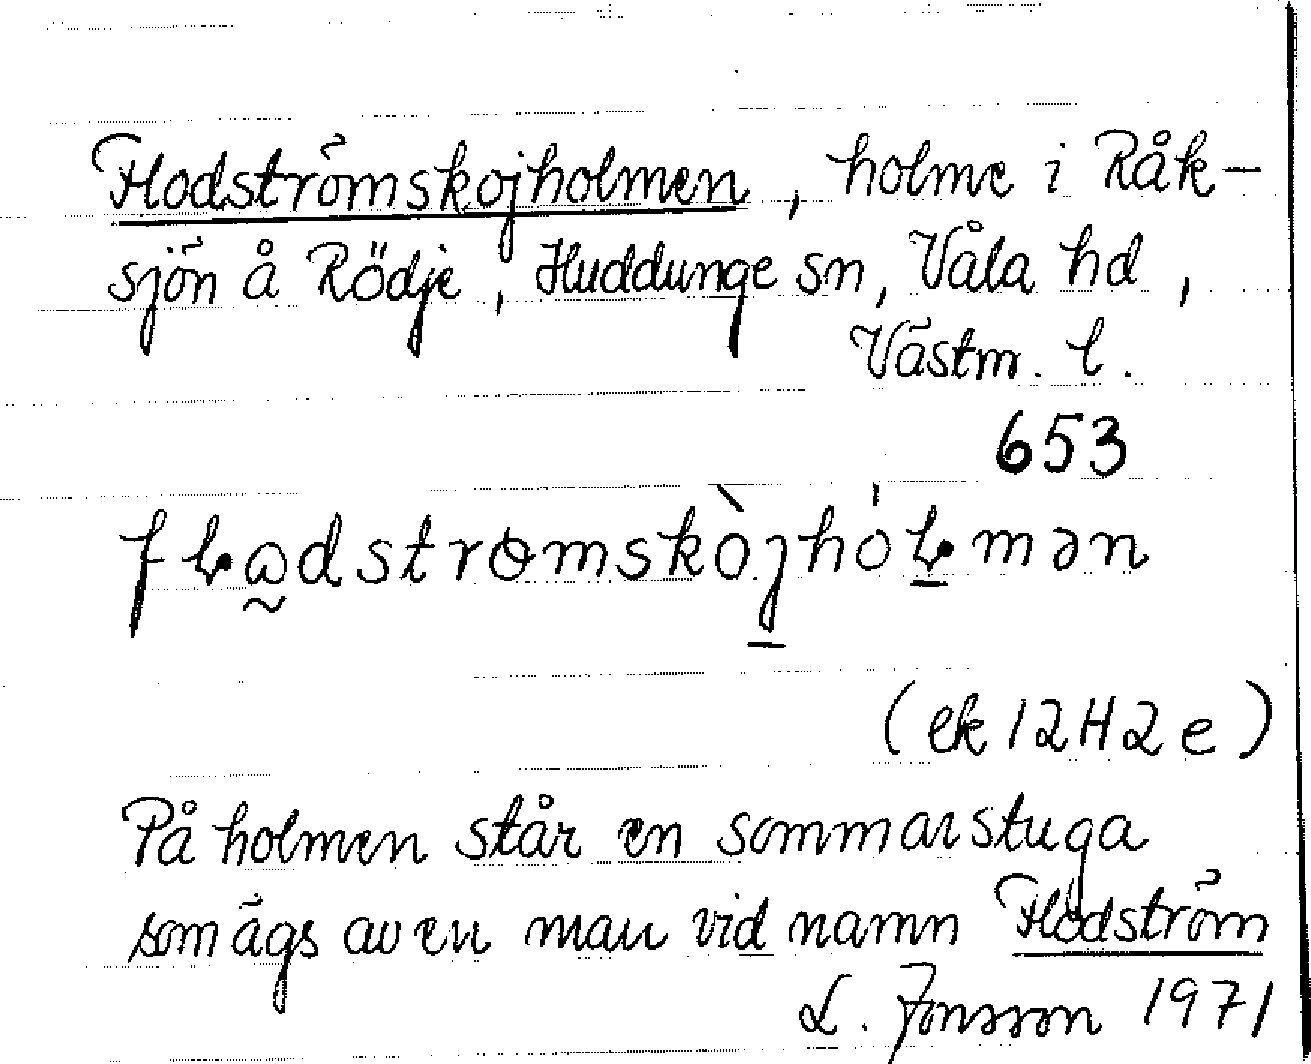 Flodströmskojholmen, holme i Råk-
sjön å Rödje, Huddunge sn, Våla hd,
Västm. l.
653
flɷdstromskòjhólmən
(ek 12H2e)
På holmen står en sommarstuga
som ägs av en man vid namn Flodström
L. Jonsson 1971